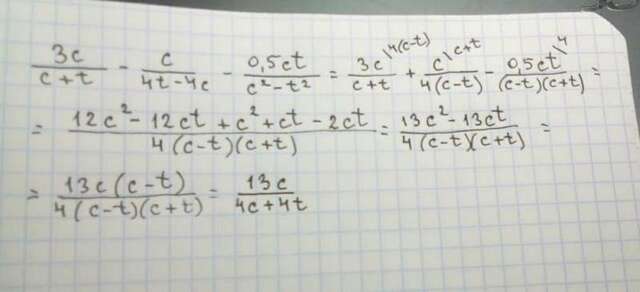 3c/(c+t) - c/(4t-4c) - 0,5ct/(c²-t²) = 3c\4(c-t)/(c+t) + c\c+t/4(c-t) - 0,5ct\4/(c-t)(c+t) =
= (12c²-12ct+c²+ct-2ct)/4(c-t)(c+t) = (13c²-13ct)/4(c-t)(c+t) =
= 13c(c-t)/4(c-t)(c+t) = 13c/(4c+4t)